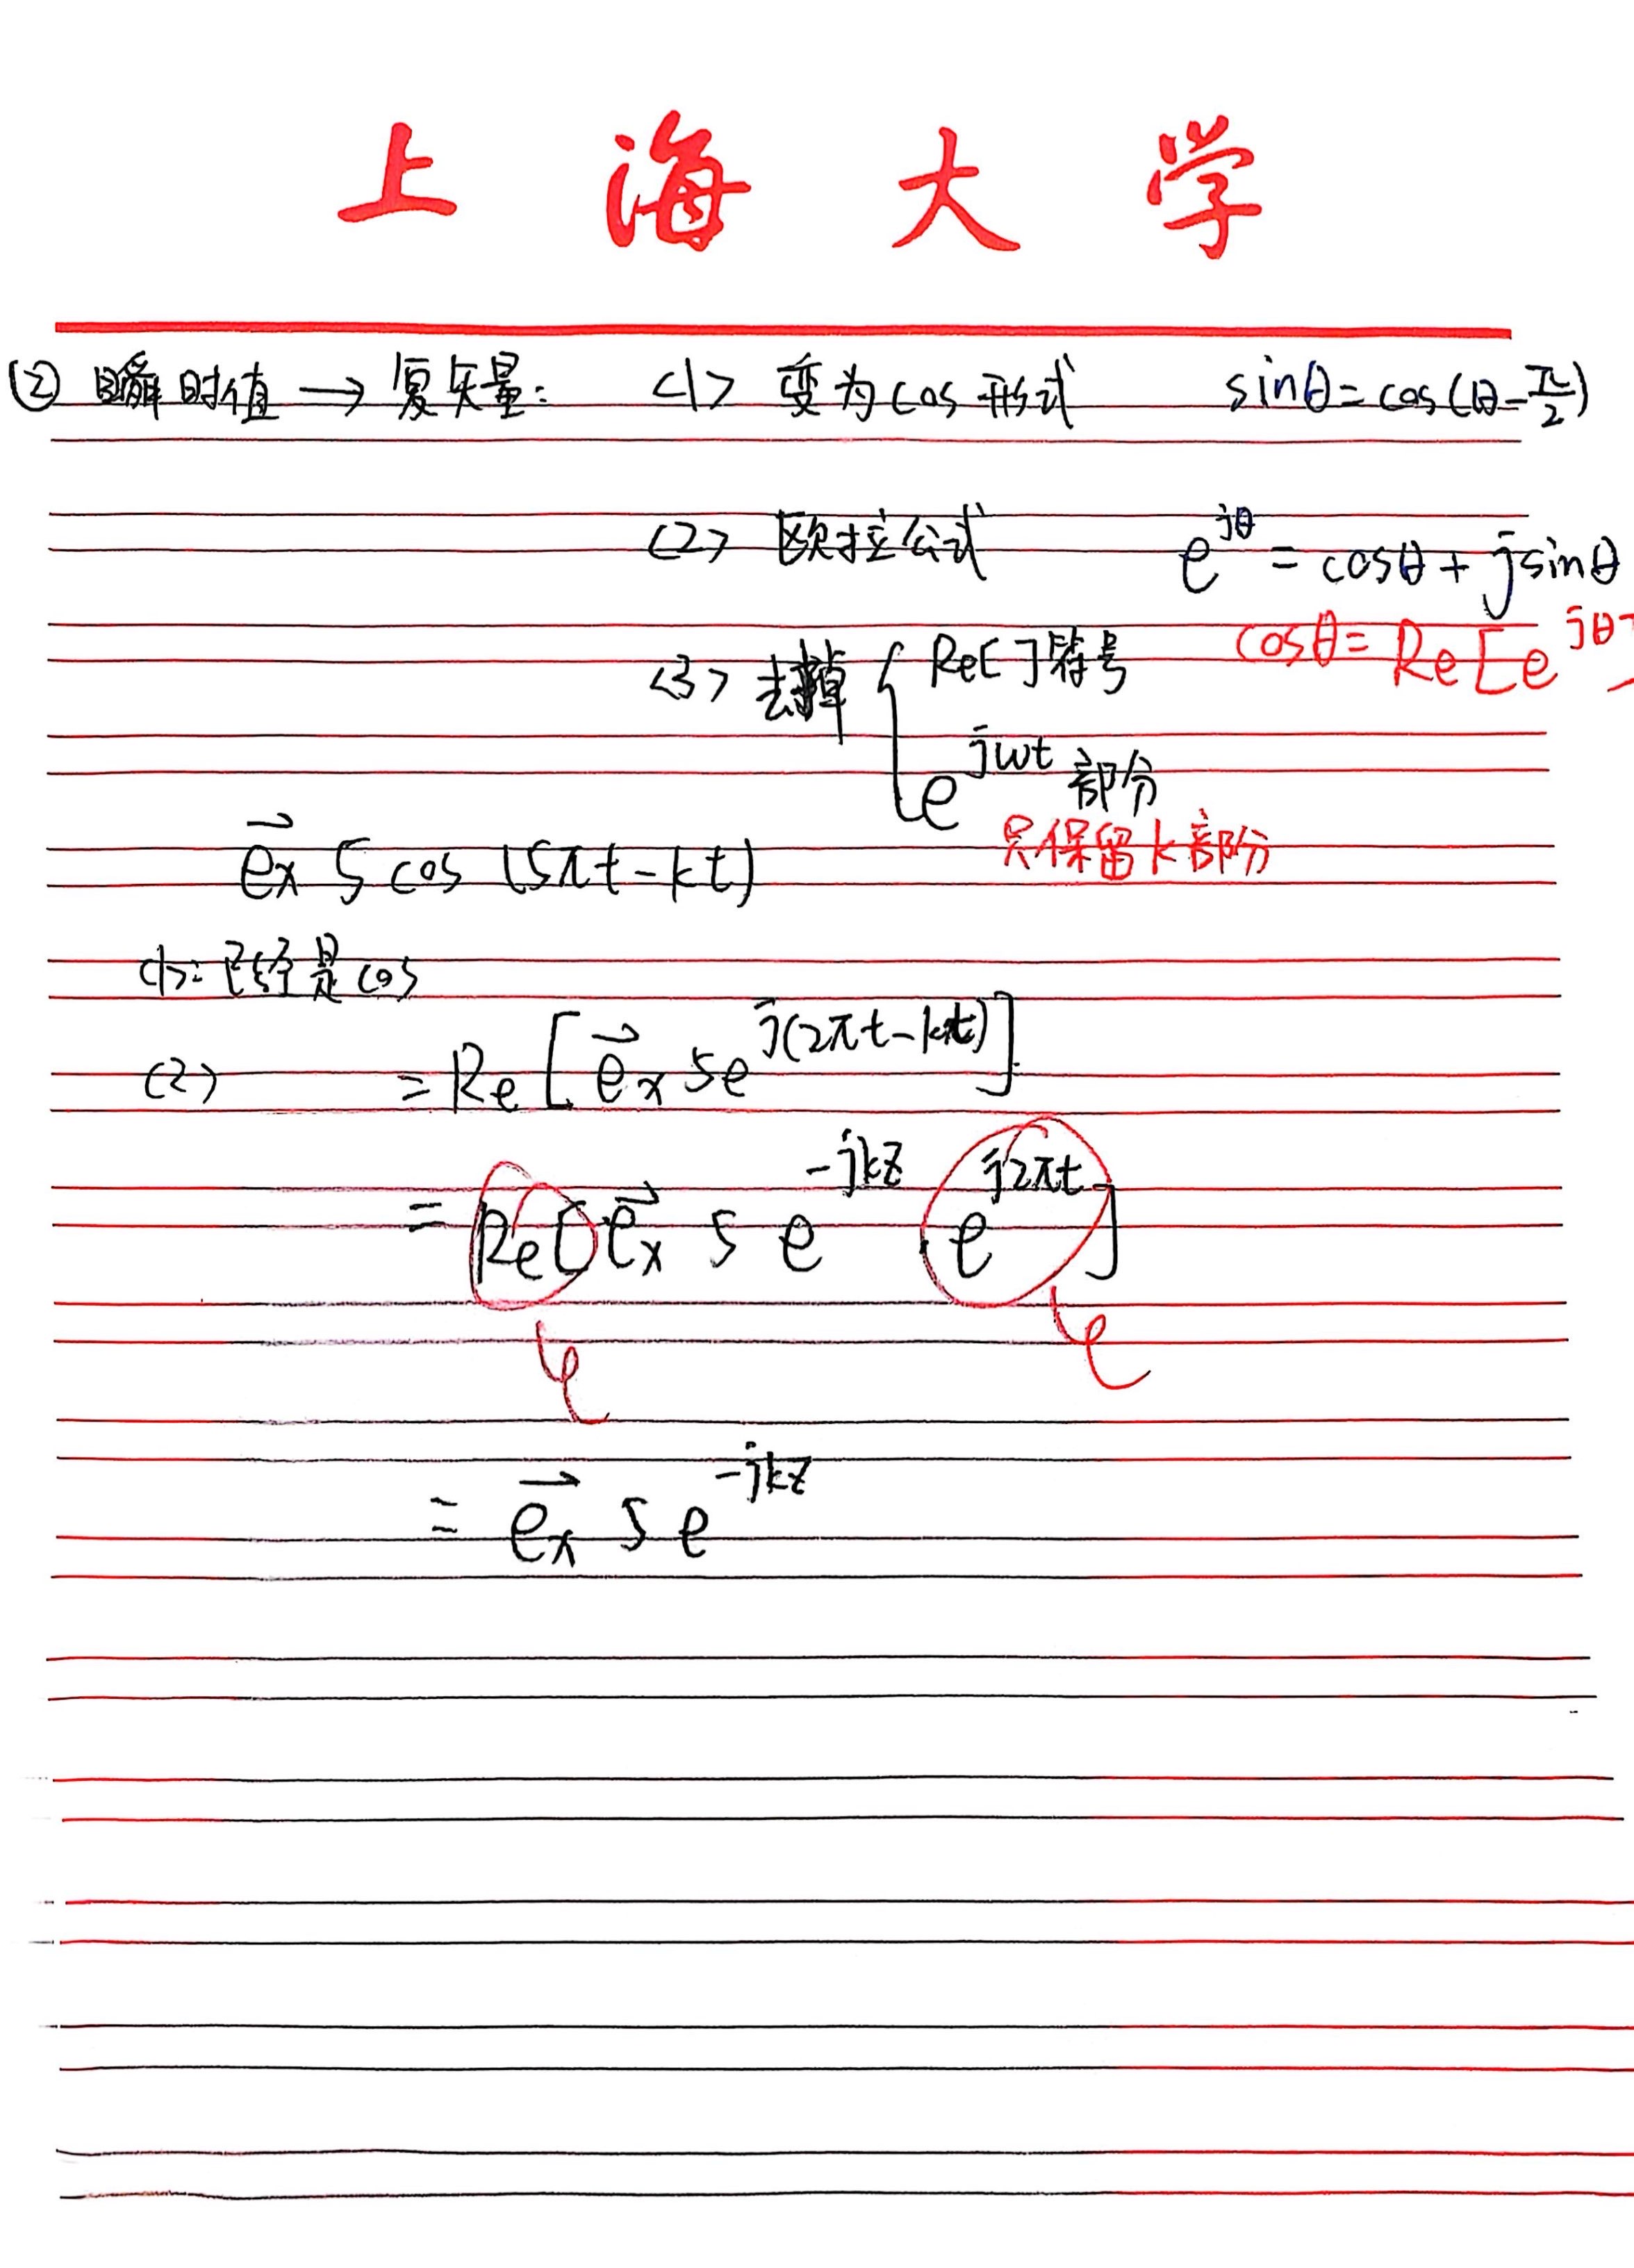 上海大学
② 瞬时值 → 复矢量: <1> 变为cos形式 sinθ=cos(θ-π/2)
<2> 欧拉公式 e^{jθ} = cosθ + jsinθ
cosθ = Re[e^{jθ}]
<3> 去掉 { Re[ ]符号
e^{jwt} 部分
只保留k部分
\vec{e}_x 5 cos (5πt-kt)
<1>: 已经是cos
<2> = Re [\vec{e}_x 5e^{j(2πt-kt)}]
= Re[\vec{e}_x 5 e^{-jkz} · e^{j2πt}]
= \vec{e}_x 5 e^{-jkz}